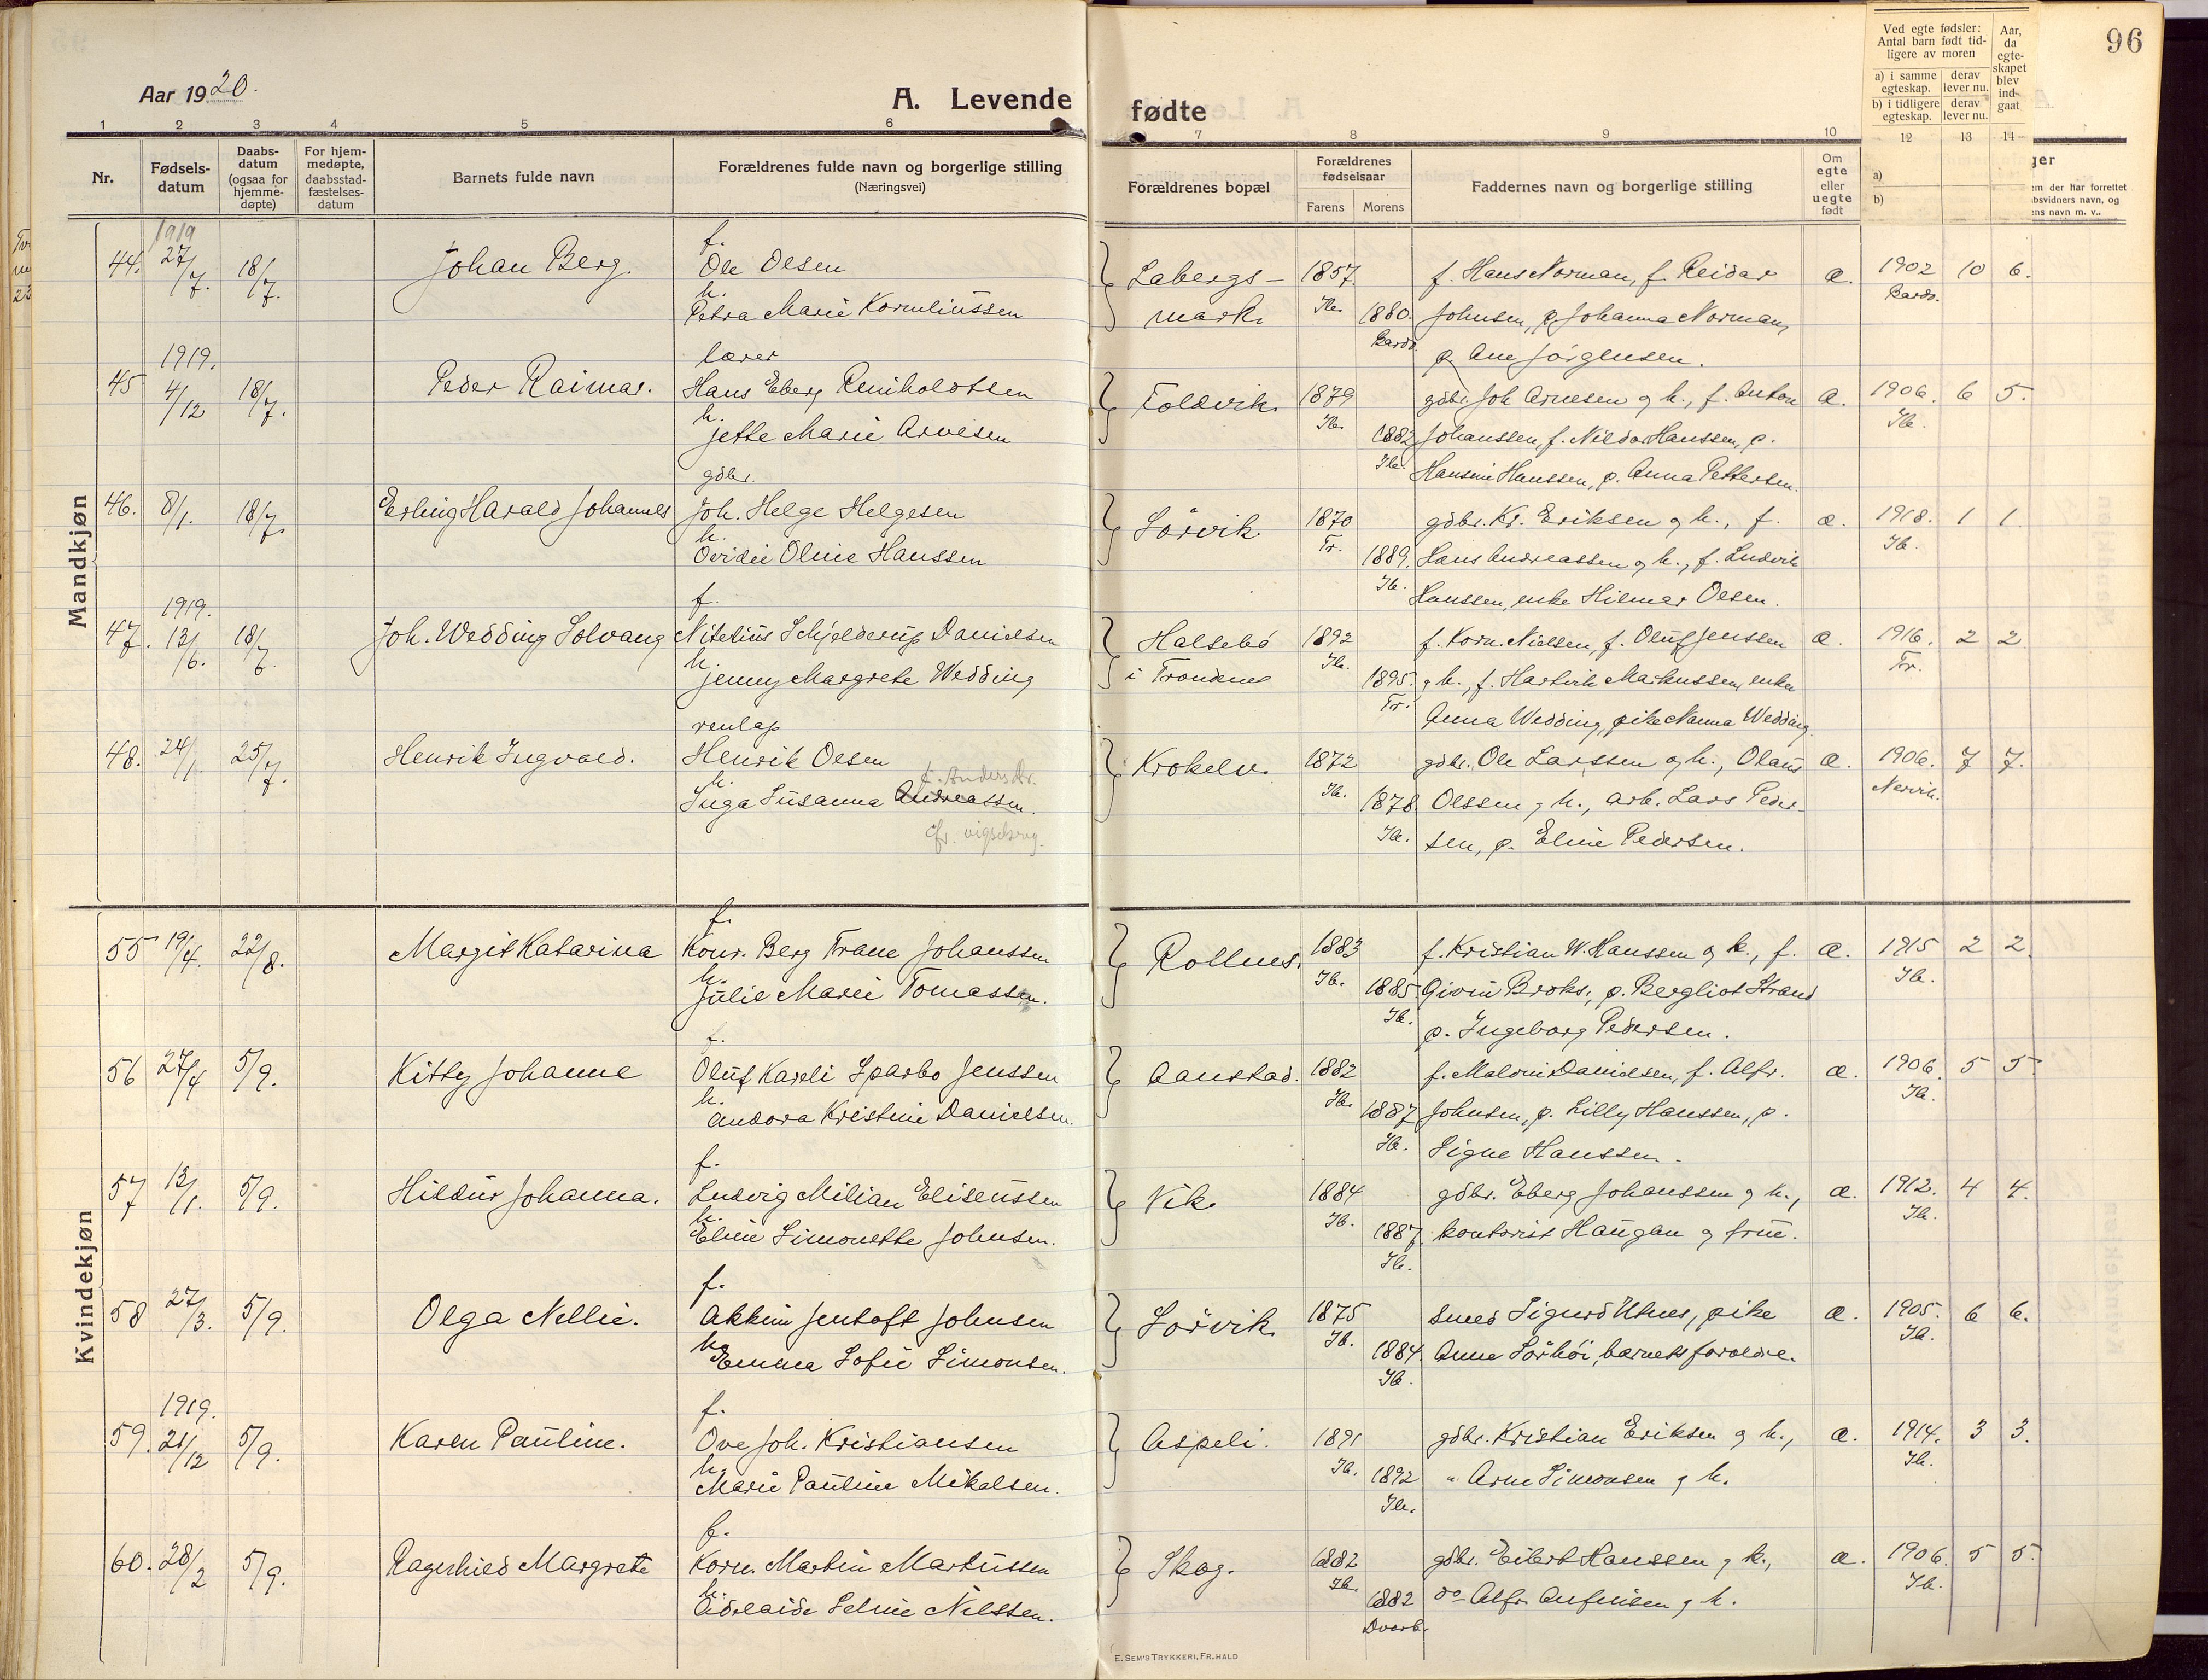 96
Aar 1920.
A. Levende fødte
1 2 3 4 5 6 7 8 9 10 12 13 14
Nr.
Fødsels-
datum
Daabs-
datum
(ogsaa for
hjemme-
døpte)
For hjem-
medøpte,
daabsstad-
fæstelses-
datum
Barnets fulde navn
Forældrenes fulde navn og borgerlige stilling
(Næringsvei)
Forældrenes bopæl
Forældrenes
fødselsaar
Farens Morens
Faddernes navn og borgerlige stilling
Om
egte
eller
uegte
født
Ved egte fødsler:
Antal barn født tid-
ligere av moren
a) i samme
egteskap.
derav
lever nu.
b) i tidligere
egteskap.
derav
lever nu.
Aar,
da
egte-
skapet
blev
ind-
gaat
a)
b)
ger
em der har forrettet
bsvidners navn, og
ens navn m. v..
Mandkjøn
1919 f.
44. 27/7. 18/7. Johan Berg. Ole Olsen Labergs- 1857 f. Hans Norman, f. Reidar a. 1902 10 6.
h. Ib. Bardo.
Petra Marie Kornliussen mark. 1880. Johnsen, p. Johanna Norman,
Bardo. p. Ane Jörgensen.
1919. lærer
45 4/12 18/7. Peder Raimar. Hans Eberg Reinholdtsen Foldvik. 1879 gdbr. Joh. Arnesen og h., f. Anton a. 1906. 6 5.
h. Ib. Ib.
Jette Marie Arvesen 1882 Johanssen, f. Hanssen, p.
Ib. Hansine Hanssen, p. Anna Pettersen.
gdbr.
46. 8/1. 18/7. Erling Harald Johannes Joh. Helge Helgesen Sörvik 1870 gdbr. Kr. Eriksen og h., f. a. 1918. 1 1
h. Tr. Ib.
Ovidie Oline Hanssen 1889. Hans Andreassen og h., f. Ludvik
Ib. Hanssen, enke Hilmar Olsen.
1919. f.
47. 13/6. 18/7. Joh. Wedding Solvang Nitelius Schjelderup Danielsen Halsebö 1892 f. Korn. Nielsen, f. Oluf Jenssen a. 1916. 2 2
h. Ib. Tr.
Jenny Margrete Wedding i Trondenes 1895. og h., f. Hartvik Markussen, enke
Tr. Anna Wedding, pike Nanna Wedding.
renlap
48. 24/1. 25/7. Henrik Ingvald. Henrik Olsen Krokelv. 1872 gdbr. Ole Larssen og h., Olaus a. 1906. 7 7.
h. f. Anders Kr. Ib. Nervik.
Inga Susanna Andreassen. 1878 Olssen og h., arb. Lars Peder-
cfr. vigselsreg. Ib. sen, p. Eline Pedersen.
Kvindekjøn
f.
55 19/4. 22/8. Margit Katarina Konr. Berg Trane Johanssen Rollnes. 1883 f. Kristian W. Hanssen og h., f. a. 1915 2 2
h. Ib. Ib.
Julie Marie Tomassen. 1885 Broks., p. Bergliot Strand
Ib. p. Ingeborg Pedersen.
f.
56 27/4 5/9. Kitty Johanne Oluf Kareli Sparbo Jenssen Aanstad. 1882 f. Danielsen, f. Alfr. a. 1906. 5 5
h. Ib. Ib.
Andora Kristine Danielsen. 1887 Johnsen, p. Lilly Hanssen, p.
Ib. Signe Hanssen.
f.
57 13/1. 5/9. Hildur Johanna. Ludvig Milian Eliseussen Vik. 1884 gdbr. Eberg Johanssen og h., a. 1912. 4 4.
h. Ib. Ib.
Eline Simonette Johnsen. 1887. kontorist Haugan og frue.
Ib.
f.
58 27/3. 5/9. Olga Nellie. Akkim Jentoft Johnsen Sörvik 1875 smed Sigurd Utnes, pike a. 1905. 6 6.
h. Ib. Ib.
Emma Sofie Simonsen. 1884. Anne Sörhöi, barnets foreldre.
Ib.
1919. f.
59. 21/12 5/9. Karen Pauline. Ove Joh. Kristiansen Aspeli. 1891 gdbr. Kristian Eriksen og h., a. 1914. 3 3.
h. Ib. Ib.
Marie Pauline Mikalsen. 1892 " Arne Simonsen og h.
Ib.
f.
60. 28/2 5/9. Ragnhild Margrete Korn. Martin Martussen Skog. 1882 gdbr. Eilert Hanssen og h., a. 1906. 5 5.
h. Ib. Ib.
Adelaide Seline Nilssen. 1882 do Alfr. Anfinsen og h.
Dverb.
E. SEM'S TRYKKERI, FR.HALD